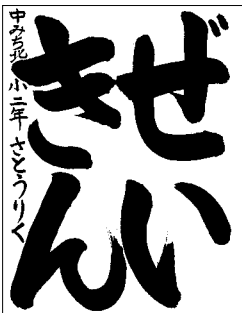 ぜい
きん
中みち北小二年さとうりく